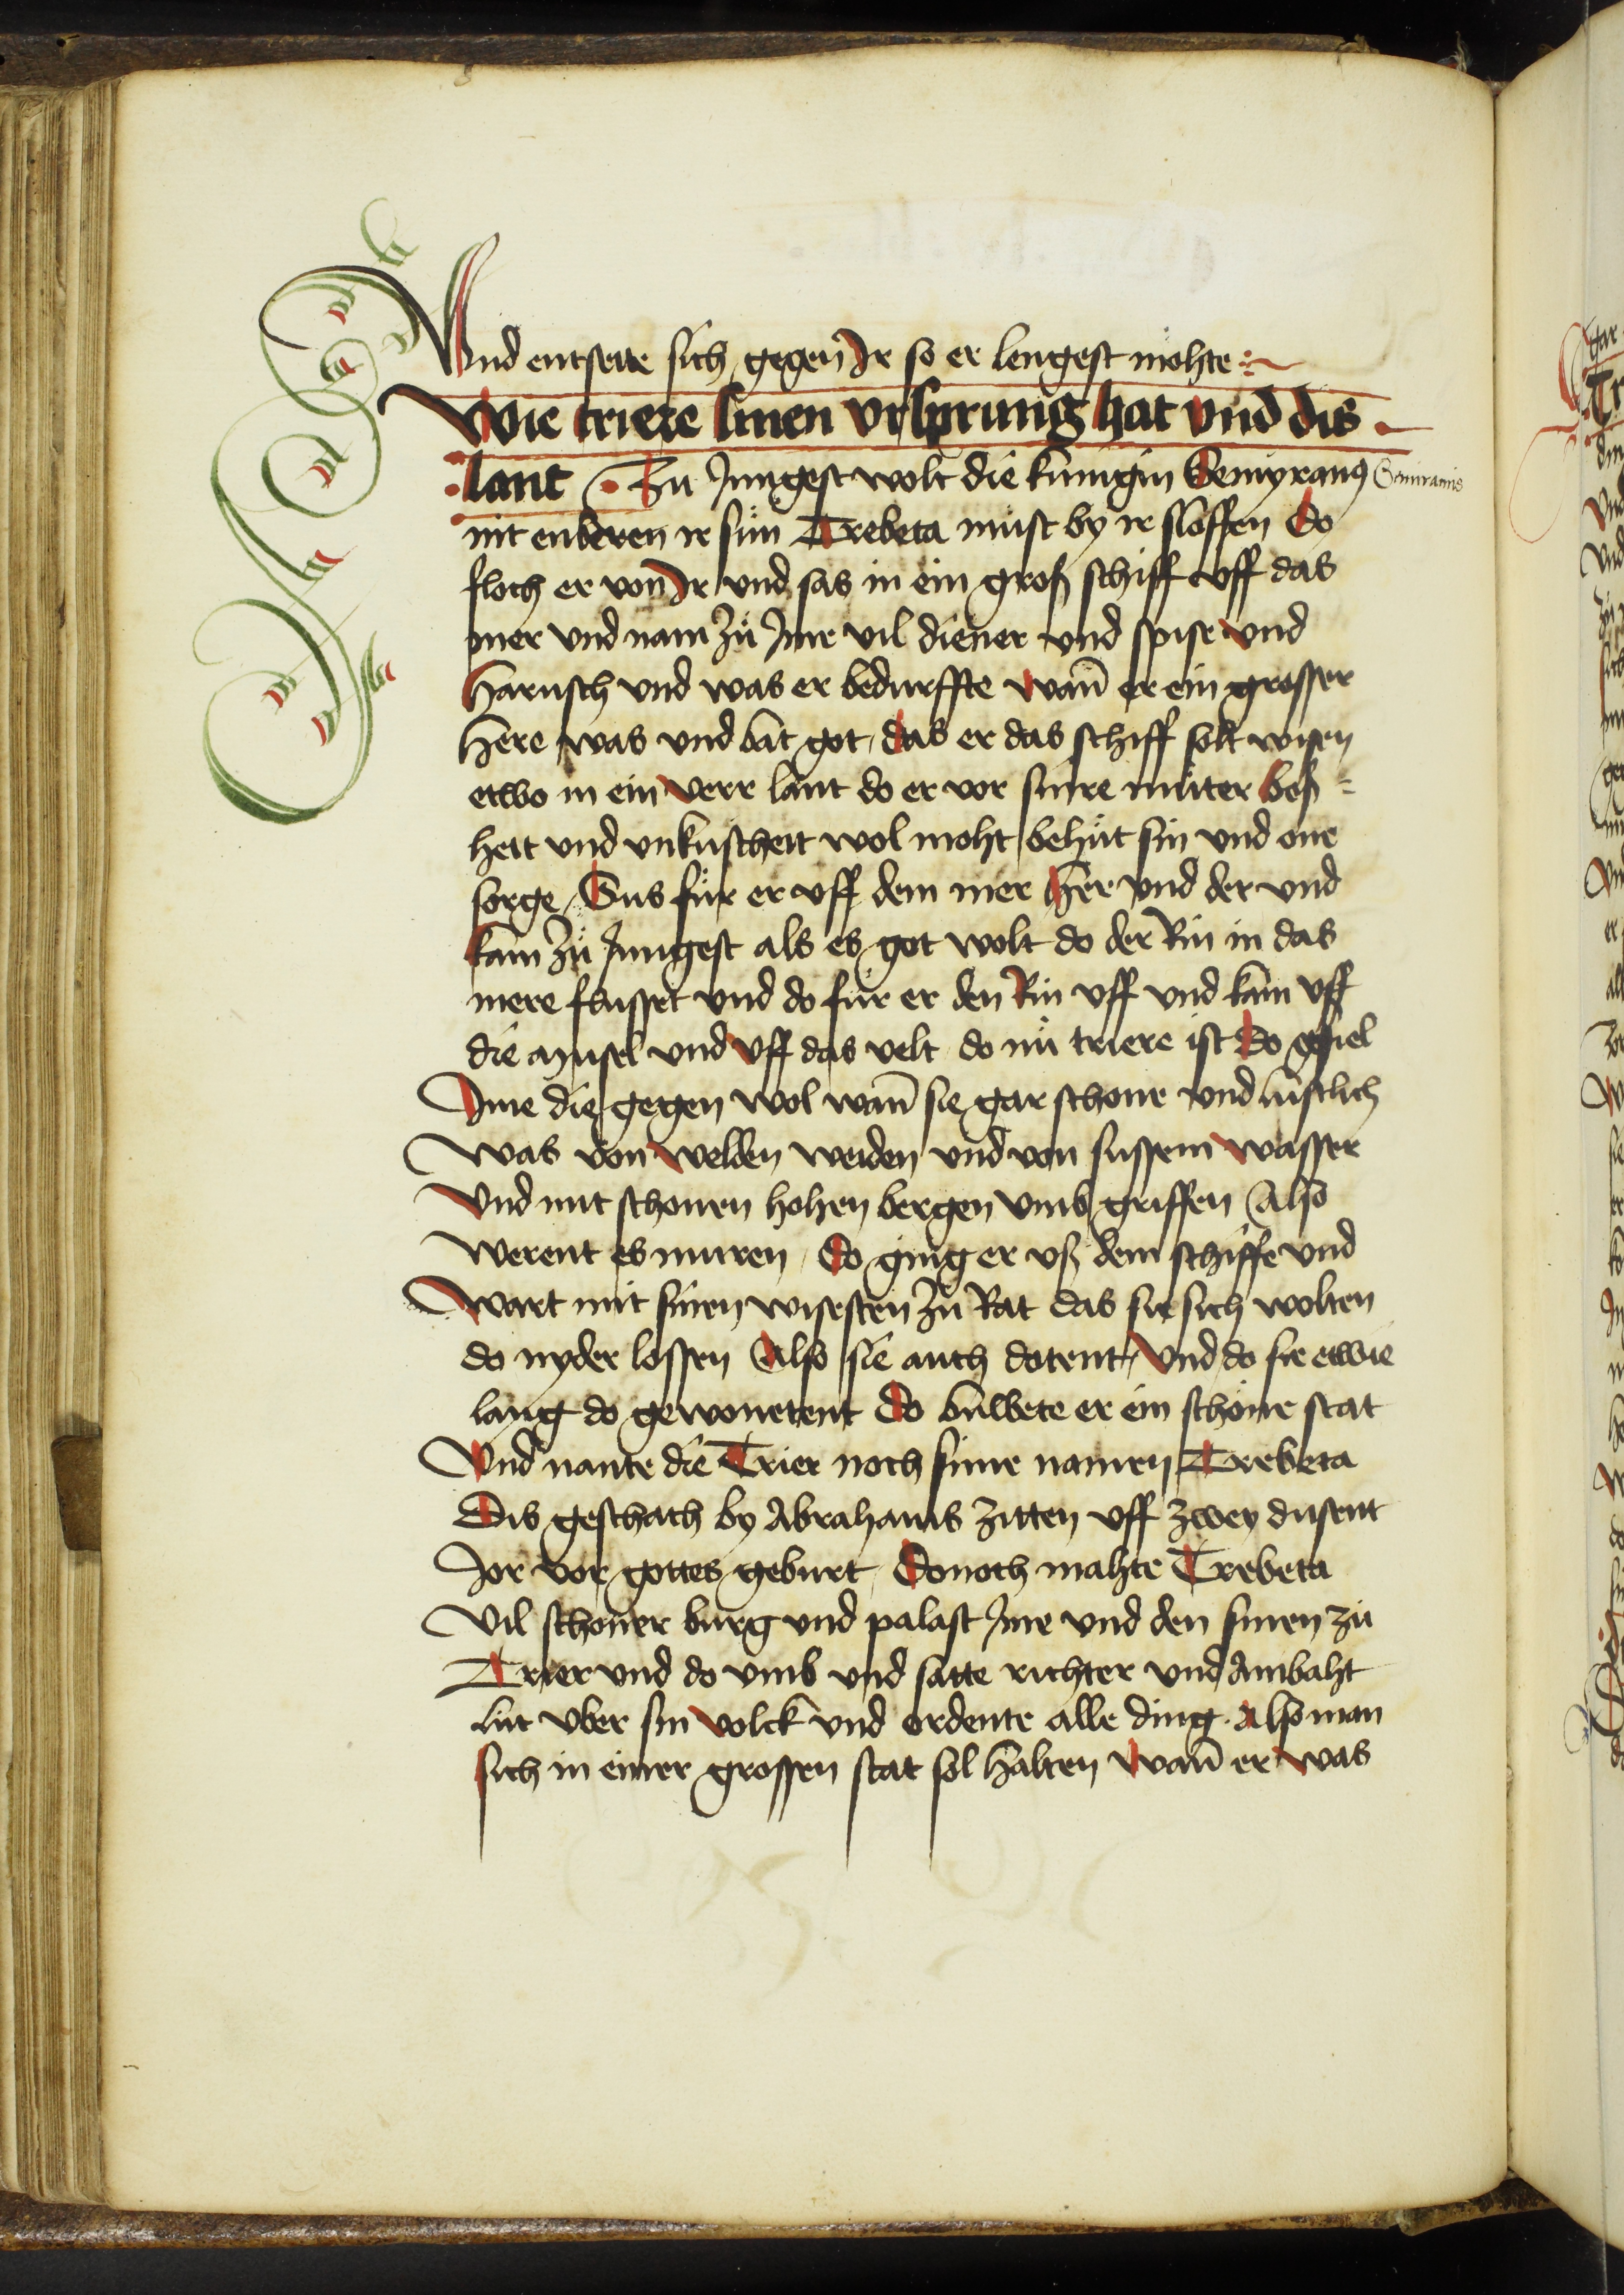 Vnd entsette sich gegen Ir so er lengest mohte
Wie triere sinen vrsprung hat vnd dis
lant Zu Jungest wolt die kunigin Semyramis Semiramis
nit enberen ir sun Trebeta must by ir sloffen Do
floch er von Ir vnd sas in ein groß schiff vff das
mer vnd nam zů Jme vil diener vnd spise vnd
harnsch vnd was er bedurffte wann̄ er ein grosser
here was vnd bat got das er das schiff solt wisen
etwo in ein verr lant do er vor sinre můter boß=
heit vnd vnkuscheit wol moht behůt sin vnd one
sorge Sus fůr er vff dem mer her vnd der vnd
kam zů Jungest als es got wolt do der Rin in das
mere flusset vnd do fůr er den Rin vff vnd kam vff
die musel vnd vff das velt do nů triere ist Do gefiel
Jme die gegen wol wann̄ sie gar schone vnd lustlich
Was von welden weiden vnd von sussem wasser
Vnd mit schonen hohen bergen vmb griffen Also
Werent es muren Do ging er vß dem schiffe vnd
Wart mit sinen wisesten zů Rat das sie sich wolten
do nyder lossen Also sie auch dotent Vnd do sie etwie
lang do gewonetent Do buwete er ein schöne stat
Vnd nante die Trier noch sime namen Trebeta
Dis geschach by Abrahams zitten vff zwey dusent
Jor vor gottes geburt Donoch mahte Trebeta
Vil schoner burg vnd palast Jme vnd den sinen zů
Trier vnd do vmb vnd satte richter vnd Ambaht
lut vber sin volck vnd ordente alle ding Also man
sich in einer grossen stat sol halten Wann̄ er was